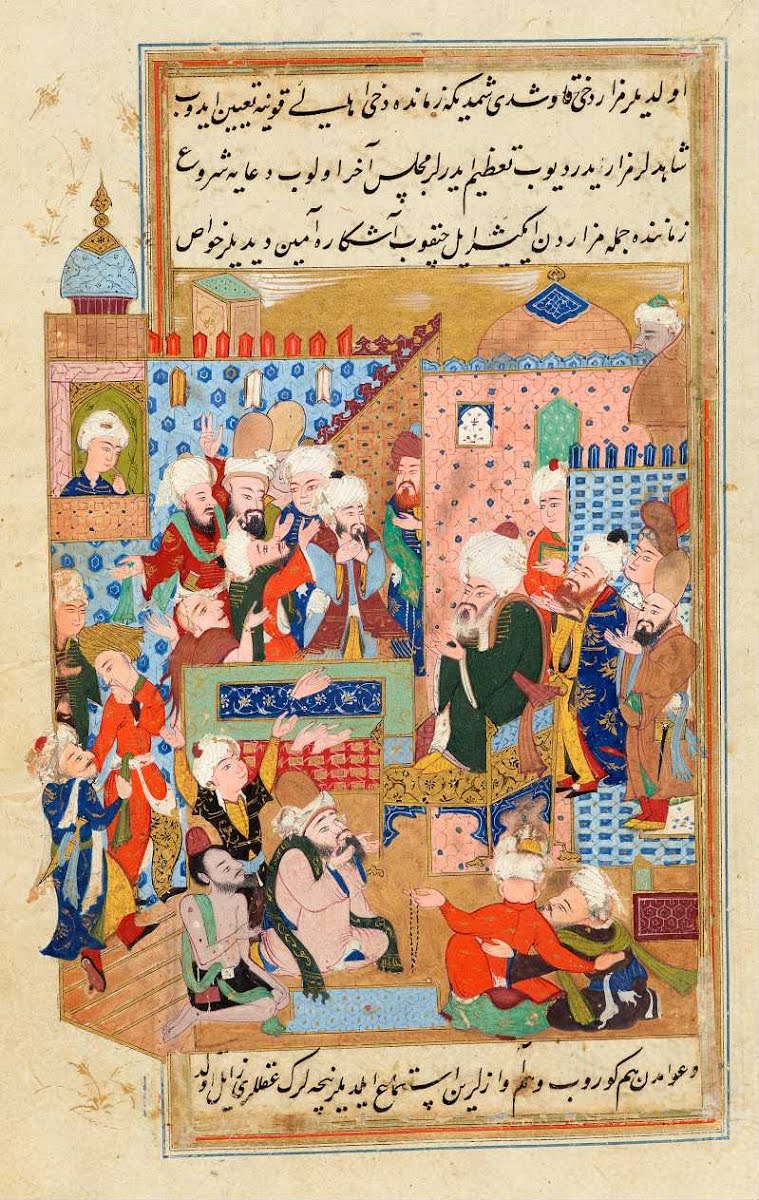 اولدیلر مزار دخی قاوشدی شمدیکه زمانده دخی اهالئ قونیه تعیین ایدوب
شاهدلر مزاریدر دیوب تعظیم ایدرلر مجلس آخر اولوب دعایه شروع
زماننده جمله مزاردن ایکیشر ایل چیقوب آشکاره آمین دیدیلر خواص
و عوامدن هم کوروب و هم آوازلرین استماع ایلدیلر نیچه لرک غفلتلری زایل اولد